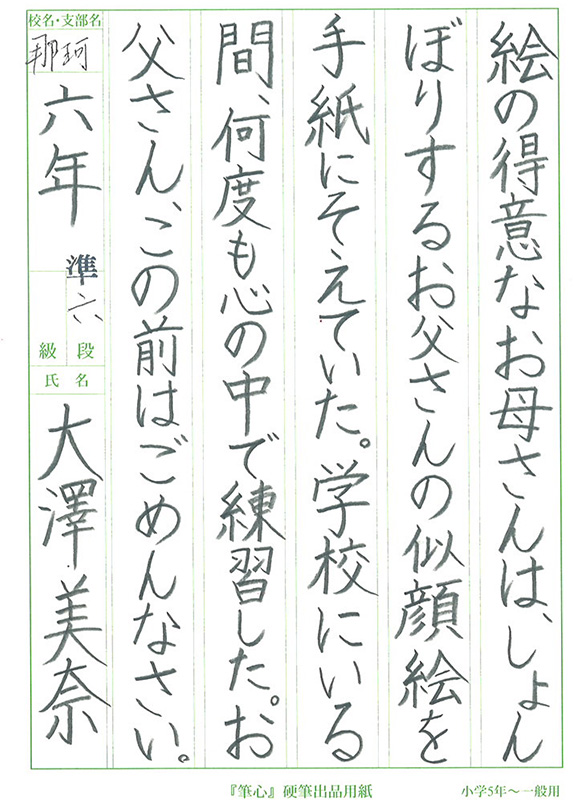 絵の得意なお母さんは、しょん
ぼりするお父さんの似顔絵を
手紙にそえていた。学校にいる
間、何度も心の中で練習した。お
父さん、この前はごめんなさい。
校名・支部名
那珂
六年
準六
級 段
氏 名
大澤美奈
『筆心』硬筆出品用紙
小学5年～一般用